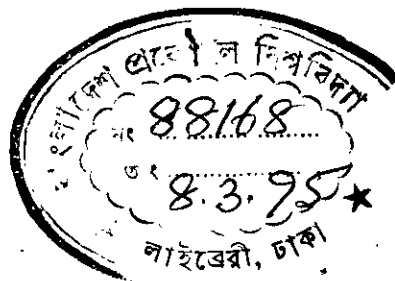 বাংলাদেশ প্রকৌশল বিশ্ববিদ্যা
নং 88168
তাং 8.3.95
লাইব্রেরী, ঢাকা